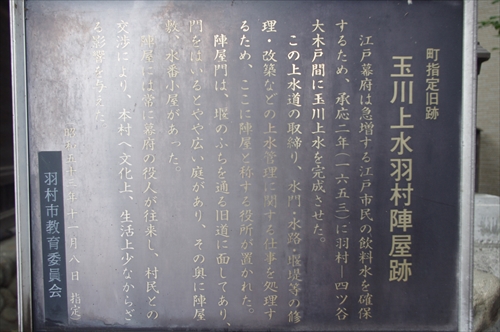 町指定旧跡
玉川上水羽村陣屋跡
江戸幕府は急増する江戸市民の飲料水を確保
するため、承応二年(一六五三)に羽村―四ツ谷
大木戸間に玉川上水を完成させた。
この上水道の取締り、水門・水路・堰堤等の修
理・改築などの上水管理に関する仕事を処理す
るため、ここに陣屋と称する役所が置かれた。
陣屋門は、堰のふちを通る旧道に面してあり、
門をはいるとやや広い庭があり、その奥に陣屋
敷、水番小屋があった。
陣屋には常に幕府の役人が往来し、村民との
交渉により、本村へ文化上、生活上少なからざ
る影響を与えた。
(昭和五十一年十一月八日 指定)
羽村市教育委員会